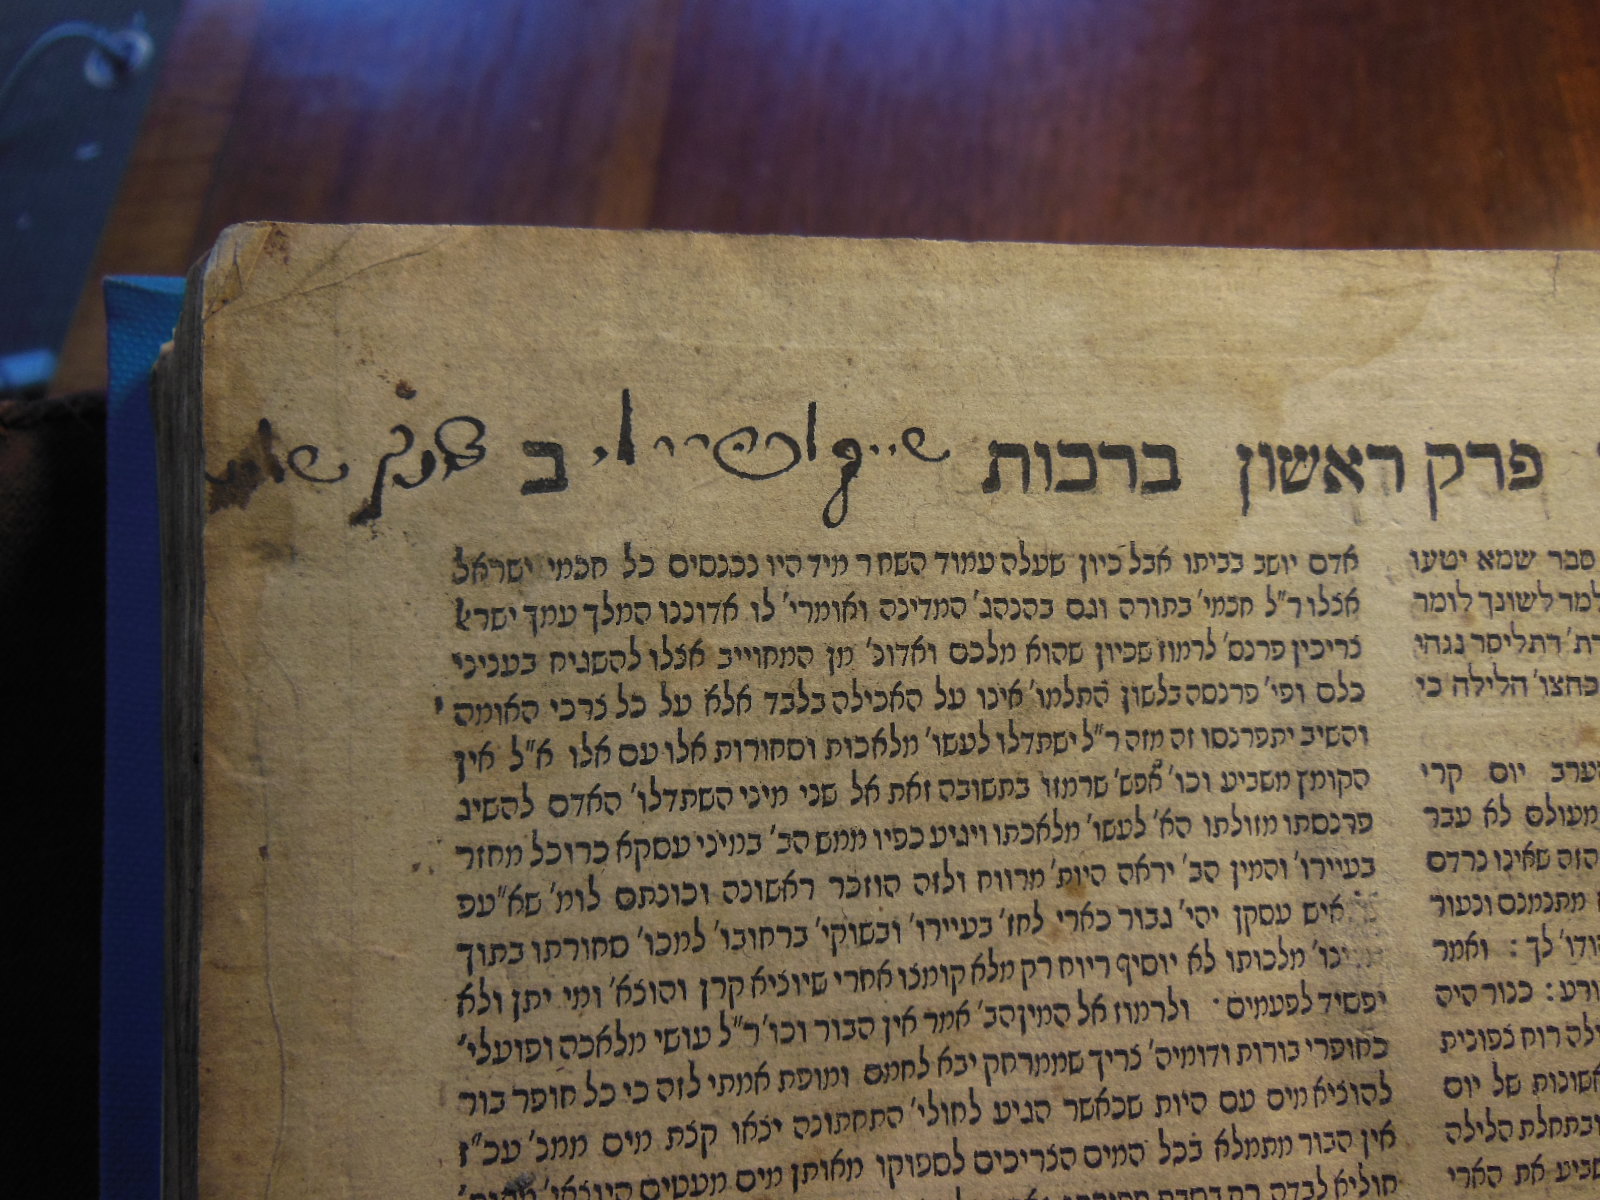 פרק ראשון ברכות ב
סבר שמא יטעו
למד לשונך לומר
דתליסר נגהי
בחצו' הלילה כי
יום קרי
מעולם לא עבר
הזה שאינו נרדם
מתנמנם וניעור
לך : ואמר
כנור היה
רוח צפונית
של יום
ובתחלת הלילה
את הארי
אדם יושב בביתו אבל כיון שעלה עמוד השחר מיד היו נכנסים כל חכמי ישראל
אצלו ר"ל חכמי' בתורה וגם בהנהג' המדינה ואומרי' לו אדוננו המלך עמך ישרא
צריכין פרנס' לרמוז שכיון שהוא מלכם ואדונ' מן המחוייב אצלו להשגיח בעניני
כלם ופי' פרנסה בלשון התלמו' אינו על האכילה בלבד אלא על כל צרכי האומה
והשיב יתפרנסו זה מזה ר"ל ישתדלו לעשו' מלאכות וסחורות אלו עם אלו א"ל אין
הקומץ משביע וכו' אפש' שרמזו בתשובה זאת אל שני מיני השתדלו' האדם להשיג
פרנסתו מזולתו הא' לעשו' מלאכתו ויגיע כפיו ממש הב' במיני עסקא כרוכל מחזר
בעיירו' והמין הב' יראה היות' מרווח ולזה הוזכר ראשונה וכונתם לומ' שא"עפ
איש עסקן יהי' גבור כארי לחז' בעיירו' ובשוקי' ברחובו' למכו' סחורתו בתוך
מלכותו לא יוסיף ריוח רק מלא קומצו אחרי שיוציא קרן והוצא' ומי יתן ולא
יפסיד לפעמים · ולרמוז אל המין הב' אמר אין הבור וכו' ר"ל עושי מלאכה ופועלי'
כחופרי בורות ודומיה' צריך שממרחק יבא לחמם ומופת אמתי לזה כי כל חופר בור
להוציא מים עם היות שכאשר הגיע לחולי' התחתונה יצאו קצת מים ממנ' עכ"ז
אין הבור מתמלא בכל המים הצריכים לספוקו מאותן מים מעטים היוצאי'
חוליא לבדה רק